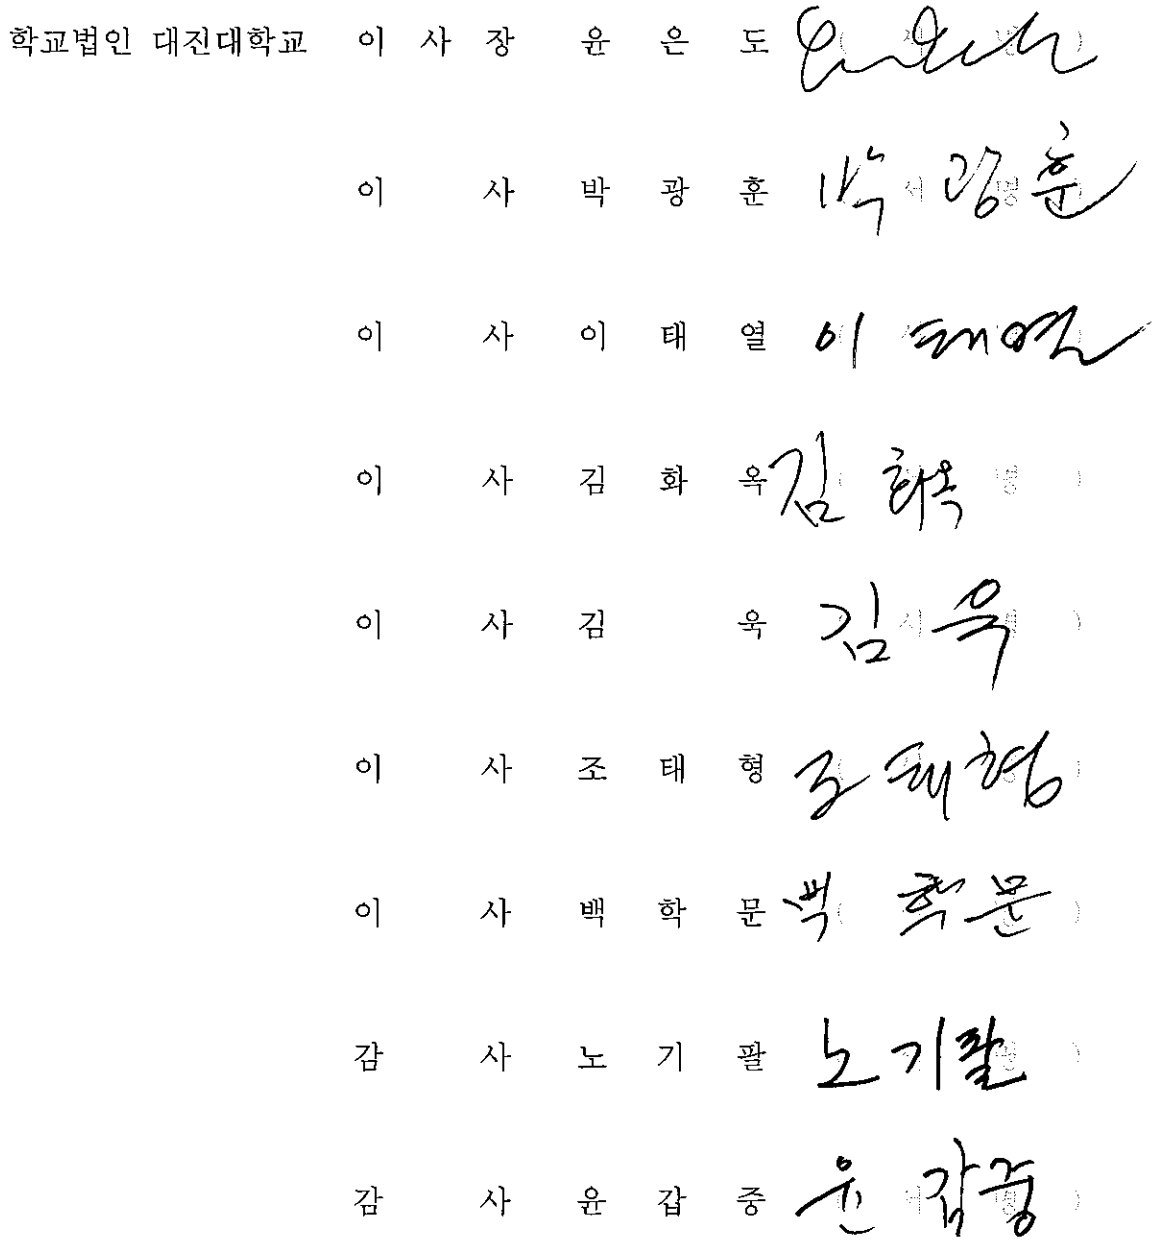 학교법인 대진대학교 이 사 장 윤 은 도
이 사 박 광 훈 박 광 훈 (서 명)
이 사 이 태 열 이 태 열
이 사 김 화 옥 김 화옥 ( 명 )
이 사 김 욱 김 욱 ( 서 명 )
이 사 조 태 형 조 태 형
이 사 백 학 문 백 학 문 ( )
감 사 노 기 팔 노 기 팔
감 사 윤 갑 중 윤 갑 중 ( 서 명 )